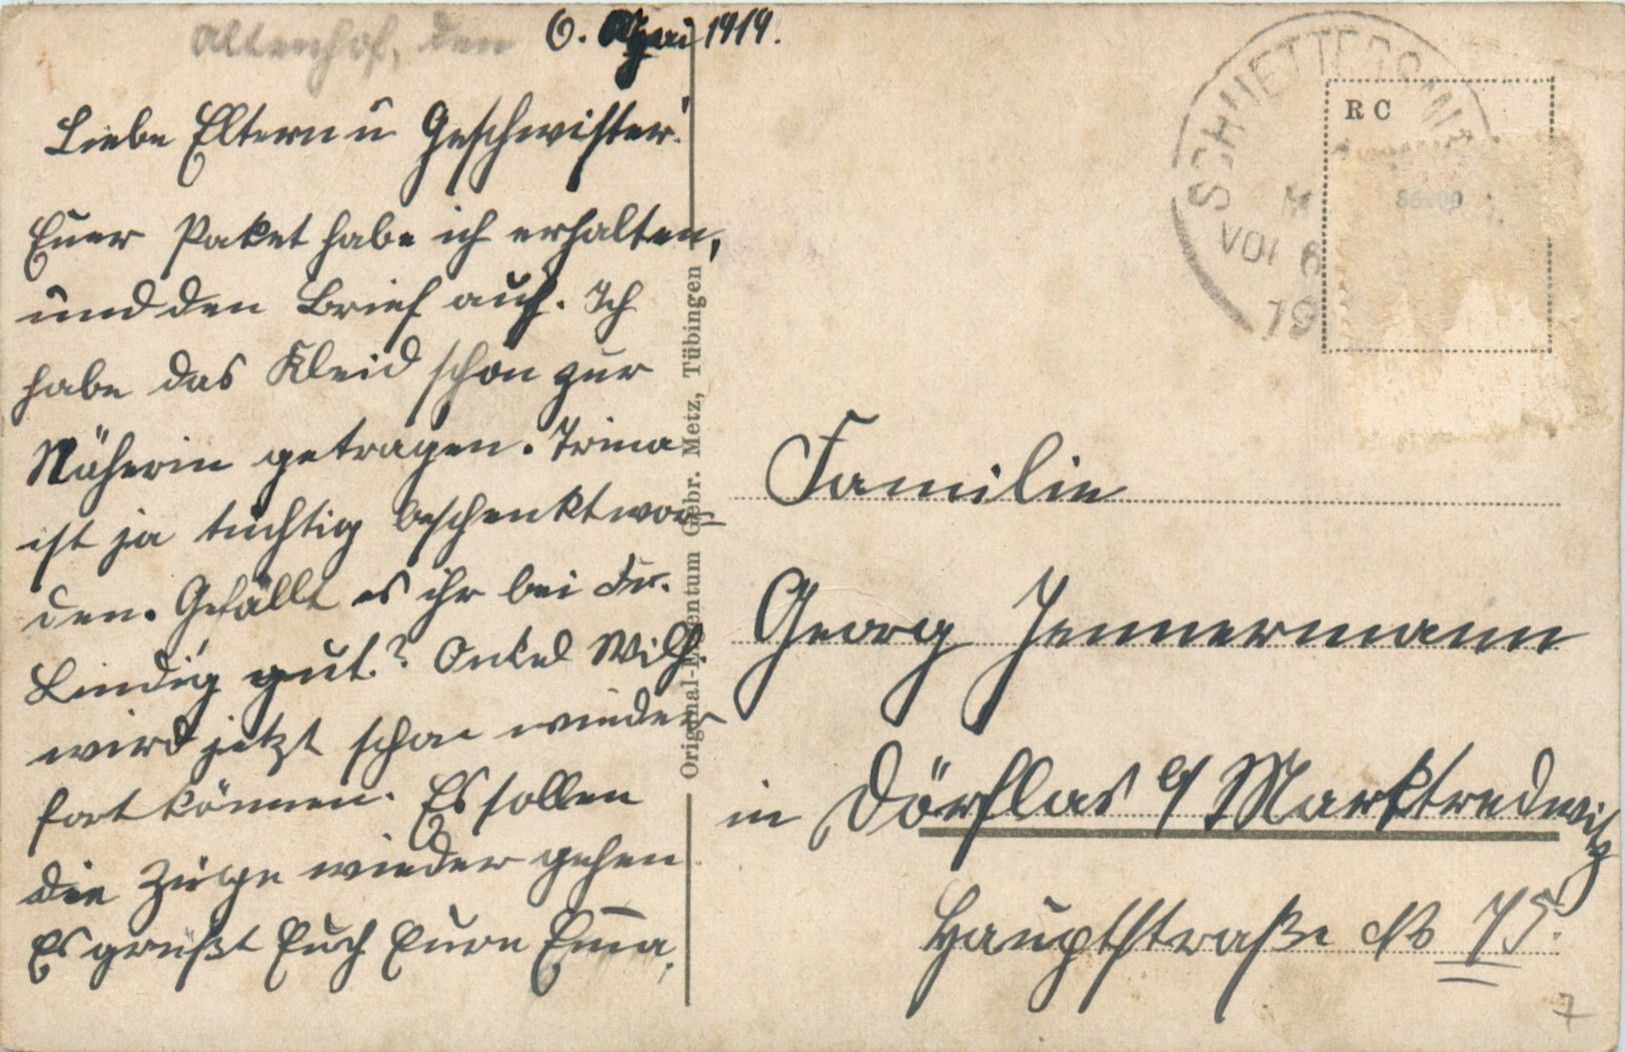 Altenhof, den 6. 1919.
Liebe Eltern u Geschwister!
Euer Paket habe ich erhalten,
und den Brief auch. Ich
habe das Kleid schon zur
Näherin getragen. Trina
ist ja tüchtig beschenkt wor-
den. Gefällt es ihr bei Fr.
Lindig gut? Onkel Wilh.
wird jetzt schon wieder
fort können. Es sollen
die Züge wieder gehen
Es grüßt Euch Eure Emma.
Original-Eigentum Gebr. Metz, Tübingen
R C
Familie
Georg Jennermann
in Dörflas b/ Marktredwitz
Hauptstraße No 75.
7